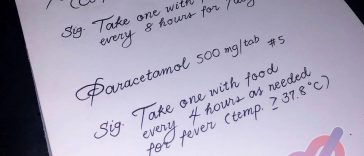 Sig. Take one with f
every 8 hours for 7 day
Paracetamol 500 mg/tab #5
Sig. Take one with food
every 4 hours as needed
for fever (temp. ≥ 37.8°C)